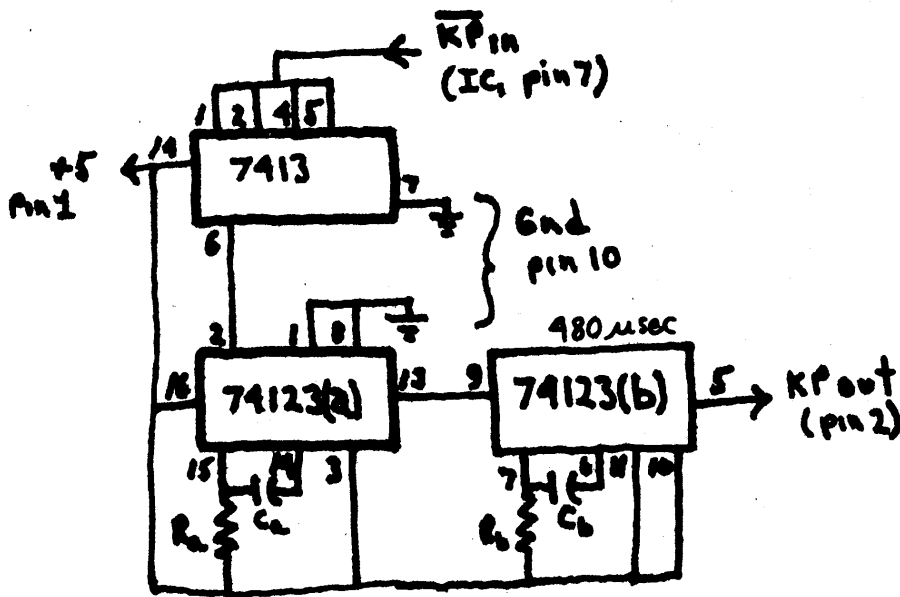 K̅P̅ in
(IC, pin 7)
1 2 4 5
+5
pin 1
14
7413
7
6
Gnd
pin 10
2 1 8
480 µsec
16
74123(a)
13
9
74123(b)
5
KP out
(pin 2)
15 14 3
Ca
Ra
7 6 11 10
Cb
Rb